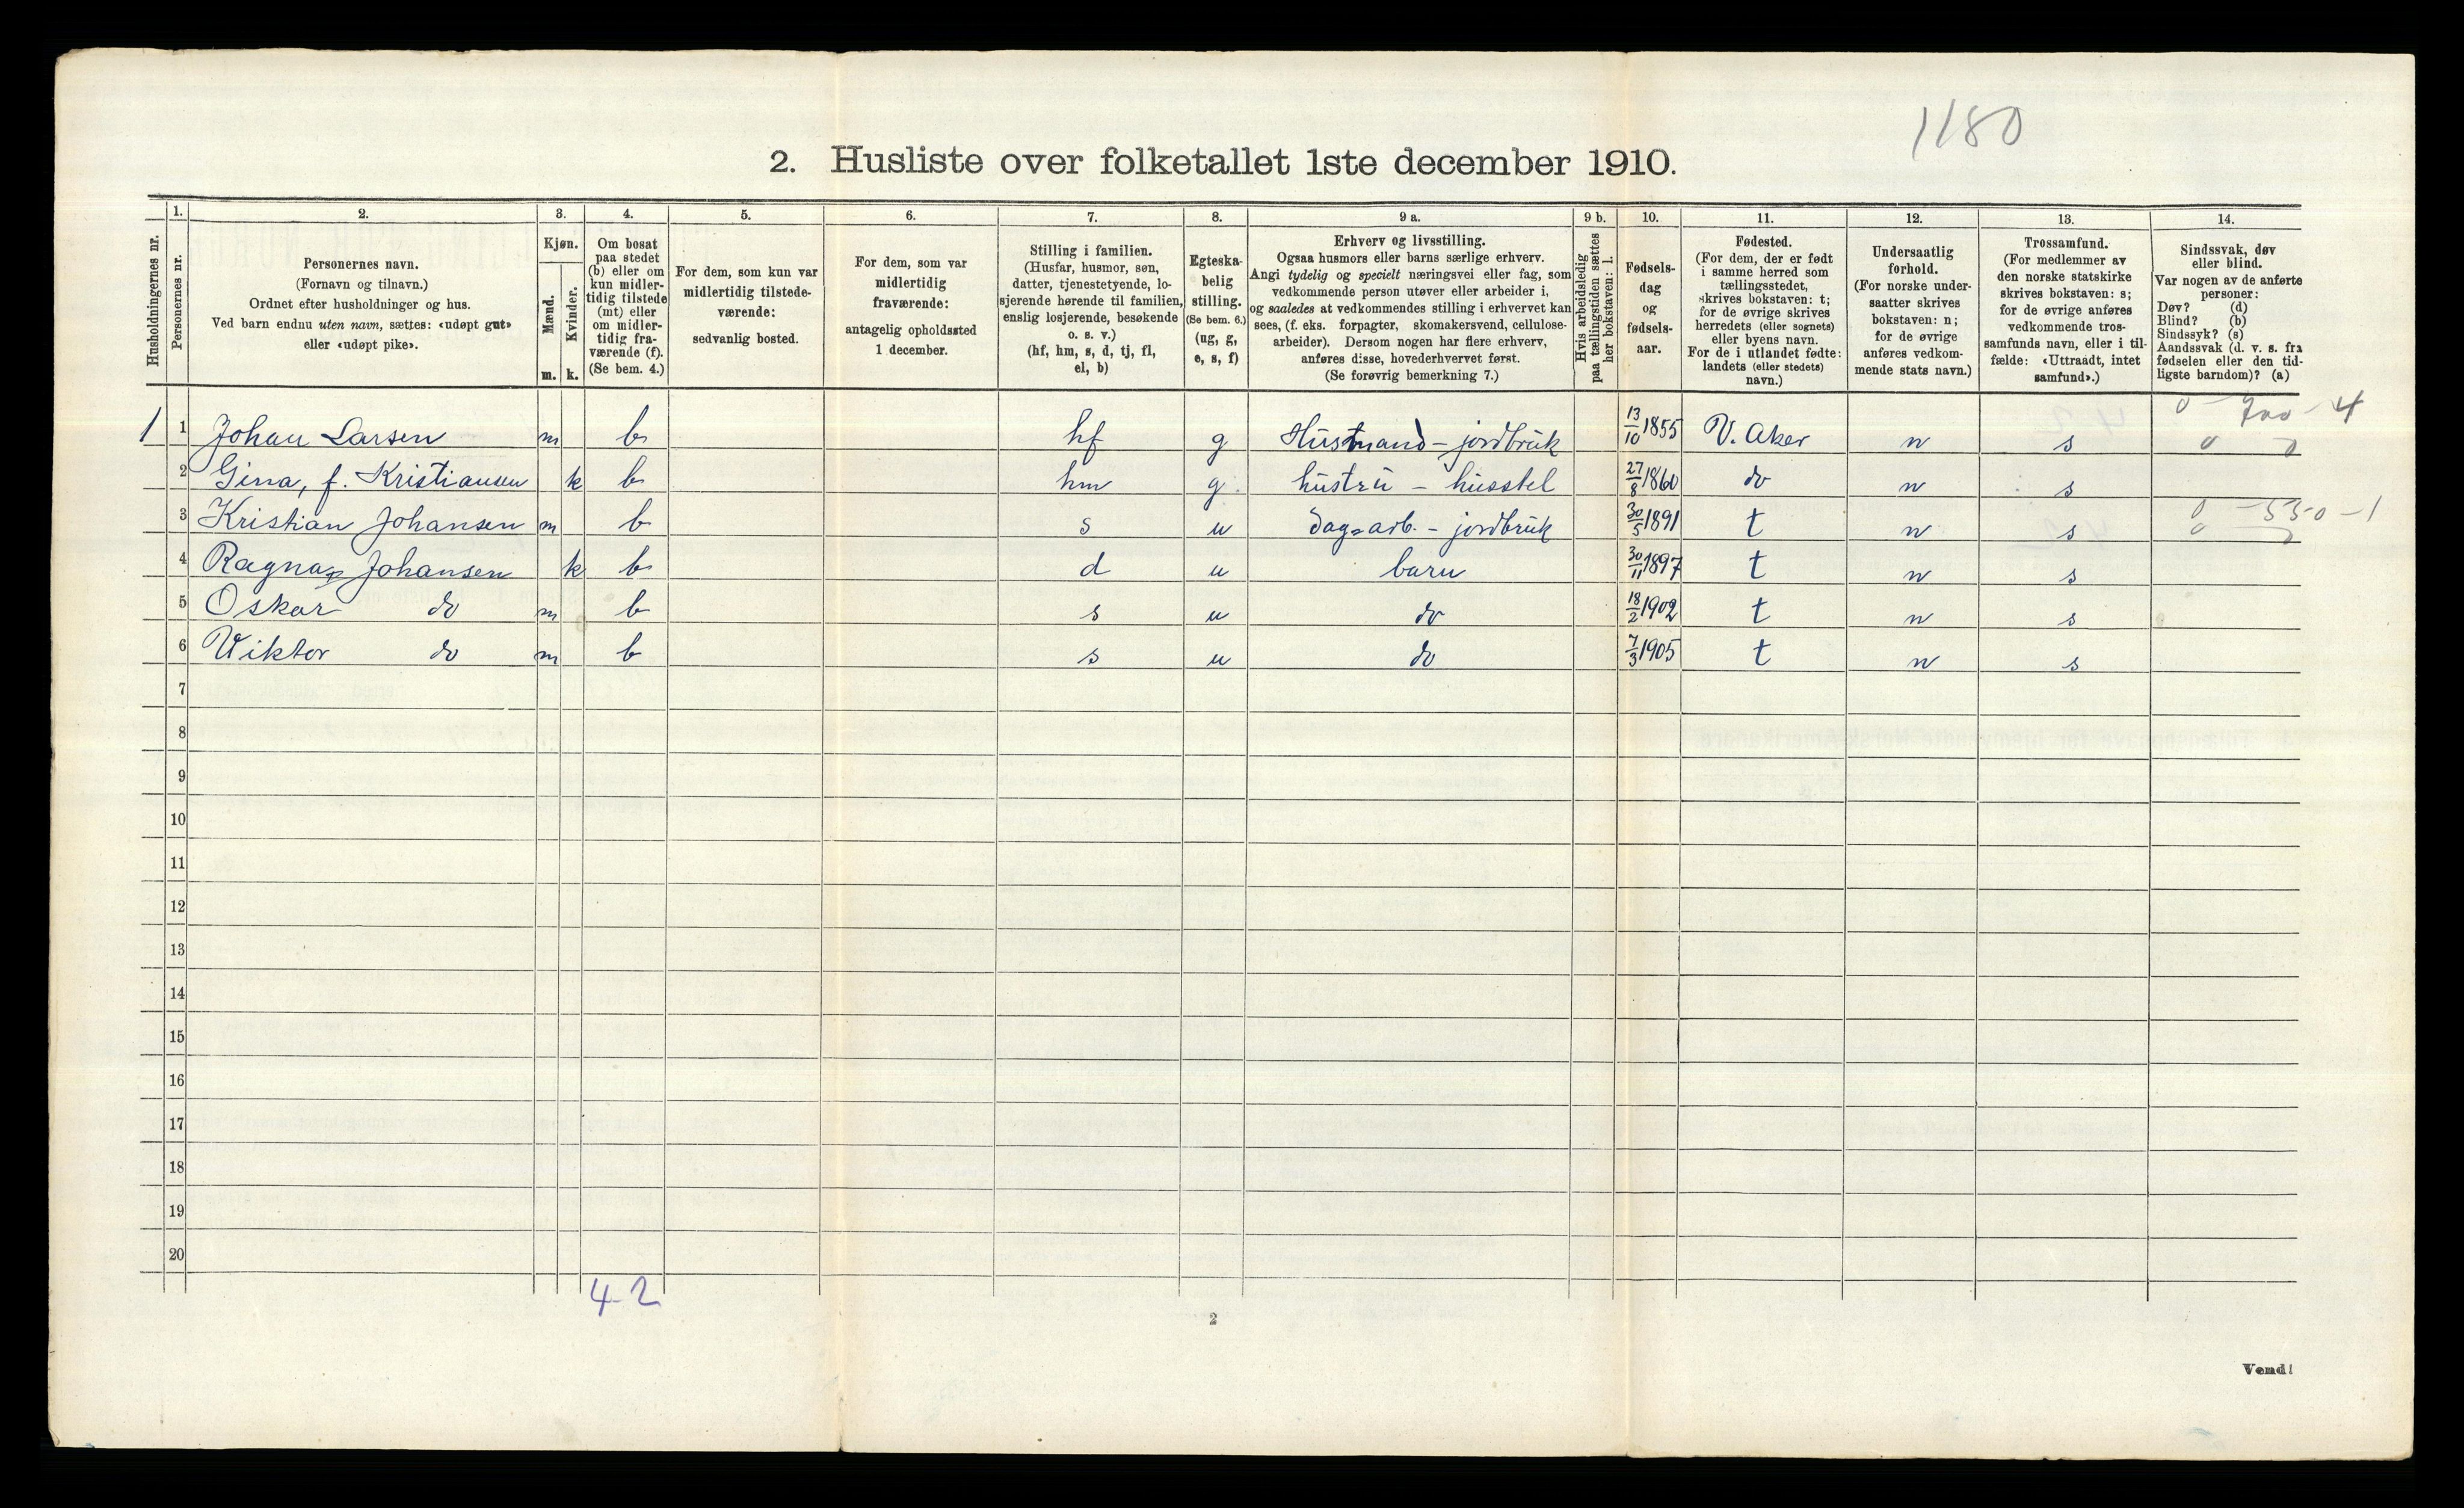 1180
2. Husliste over folketallet 1ste december 1910.
Husholdningernes nr.
1.
Personernes nr.
2.
Personernes navn.
(Fornavn og tilnavn.)
Ordnet efter husholdninger og hus.
Ved barn endnu uten navn, sættes: «udøpt gut»
eller «udøpt pike».
3.
Kjøn.
Mænd.
m.
Kvinder.
k.
4.
Om bosat
paa stedet
(b) eller om
kun midler-
tidig tilstede
(mt) eller
om midler-
tidig fra-
værende (f).
(Se bem. 4.)
5.
For dem, som kun var
midlertidig tilstede-
værende:
sedvanlig bosted.
6.
For dem, som var
midlertidig
fraværende:
antagelig opholdssted
1 december.
7.
Stilling i familien.
(Husfar, husmor, søn,
datter, tjenestetyende, lo-
sjerende hørende til familien,
enslig losjerende, besøkende
o. s. v.)
(hf, hm, s, d, tj, fl,
el, b)
8.
Egteska-
belig
stilling.
(Se bem. 6.)
(ug, g,
e, s, f)
9 a.
Erhverv og livsstilling.
Ogsaa husmors eller barns særlige erhverv.
Angi tydelig og specielt næringsvei eller fag, som
vedkommende person utøver eller arbeider i,
og saaledes at vedkommendes stilling i erhvervet kan
sees, (f. eks. forpagter, skomakersvend, cellulose-
arbeider). Dersom nogen har flere erhverv,
anføres disse, hovederhvervet først.
(Se forøvrig bemerkning 7.)
9 b.
Hvis arbeidsledig
paa tællingstiden sættes
her bokstaven: l.
10.
Fødsels-
dag
og
fødsels-
aar.
11.
Fødested.
(For dem, der er født
i samme herred som
tællingsstedet,
skrives bokstaven: t;
for de øvrige skrives
herredets (eller sognets)
eller byens navn.
For de i utlandet fødte:
landets (eller stedets)
navn.)
12.
Undersaatlig
forhold.
(For norske under-
saatter skrives
bokstaven: n;
for de øvrige
anføres vedkom-
mende stats navn.)
13.
Trossamfund.
(For medlemmer av
den norske statskirke
skrives bokstaven: s;
for de øvrige anføres
vedkommende tros-
samfunds navn, eller i til-
fælde: «Uttraadt, intet
samfund».)
14.
Sindssvak, døv
eller blind.
Var nogen av de anførte
personer:
Døv? (d)
Blind? (b)
Sindssyk? (s)
Aandssvak (d. v. s. fra
fødselen eller den tid-
ligste barndom)? (a)
0 - 700 - 4
1 1 Johan Larsen m b hf g Husmand - jordbruk 13/10 1855 V. Aker n s 0 0
2 Gina, f. Kristiansen k b hm g. hustru - husstel 27/8 1860 do n s
0 - 550 - 1
3 Kristian Johansen m b s u dagarb. - jordbruk 30/5 1891 t n s 0
4 Ragna Johansen k b d u barn 30/11 1897 t n s
5 Oskar do m b s u do 18/2 1902 t n s
6 Viktor do m b s u do 7/3 1905 t n s
7
8
9
10
11
12
13
14
15
16
17
18
19
20
4-2
2
Vend!